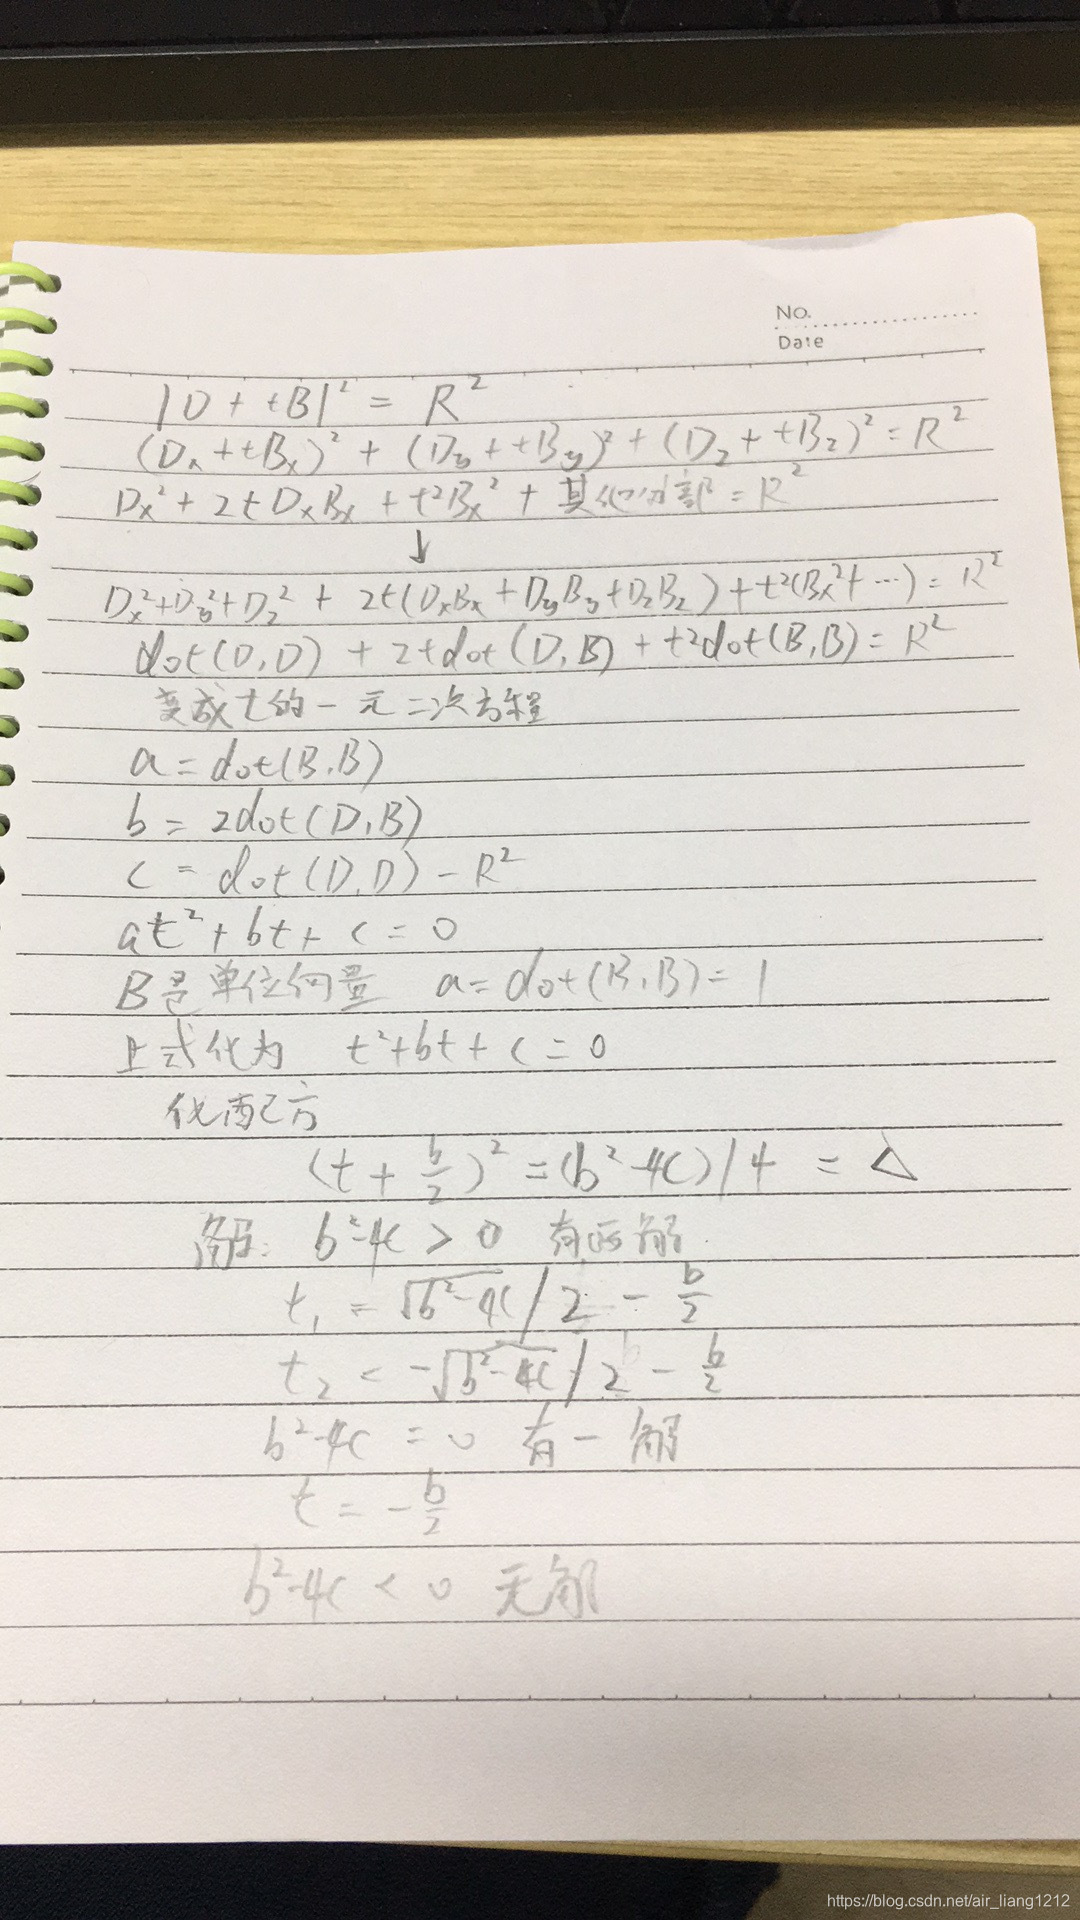 No.
Date
|D + tB|² = R²
(Dx + tBx)² + (Dy + tBy)² + (Dz + tBz)² = R²
Dx² + 2tDxBx + t²Bx² + 其他分部 = R²
↓
Dx²+Dy²+Dz² + 2t(DxBx + DyBy + DzBz) + t²(Bx²+ ...) = R²
dot(D,D) + 2tdot(D,B) + t²dot(B,B) = R²
变成t的一元二次方程
a = dot(B,B)
b = 2dot(D,B)
c = dot(D,D) - R²
at² + bt + c = 0
B是单位向量 a = dot(B,B) = 1
上式化为 t²+bt+c = 0
化配方
(t + b/2)² = (b²-4c)/4 = △
解: b²-4c > 0 有两解
t₁ = √b²-4c / 2 - b/2
t₂ = -√b²-4c / 2 - b/2
b²-4c = 0 有一解
t = -b/2
b²-4c < 0 无解
https://blog.csdn.net/air_liang1212